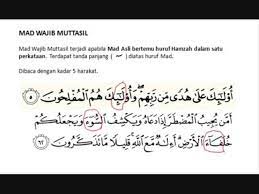 MAD WAJIB MUTTASIL
Mad Wajib Muttasil terjadi apabila Mad Asli bertemu huruf Hamzah dalam satu
perkataan. Terdapat tanda panjang ( ~ ) diatas huruf Mad.
Dibaca dengan kadar 5 harakat.
أُولَٰٓئِكَ عَلَىٰ هُدًى مِّن رَّبِّهِمْ ۖ وَأُولَٰٓئِكَ هُمُ ٱلْمُفْلِحُونَ ٥
أَمَّن يُجِيبُ ٱلْمُضْطَرَّ إِذَا دَعَاهُ وَيَكْشِفُ ٱلسُّوٓءَ وَيَجْعَلُكُمْ
خُلَفَآءَ ٱلْأَرْضِ ۗ أَءِلَٰهٌ مَّعَ ٱللَّهِ ۚ قَلِيلًا مَّا تَذَكَّرُونَ ٦٢